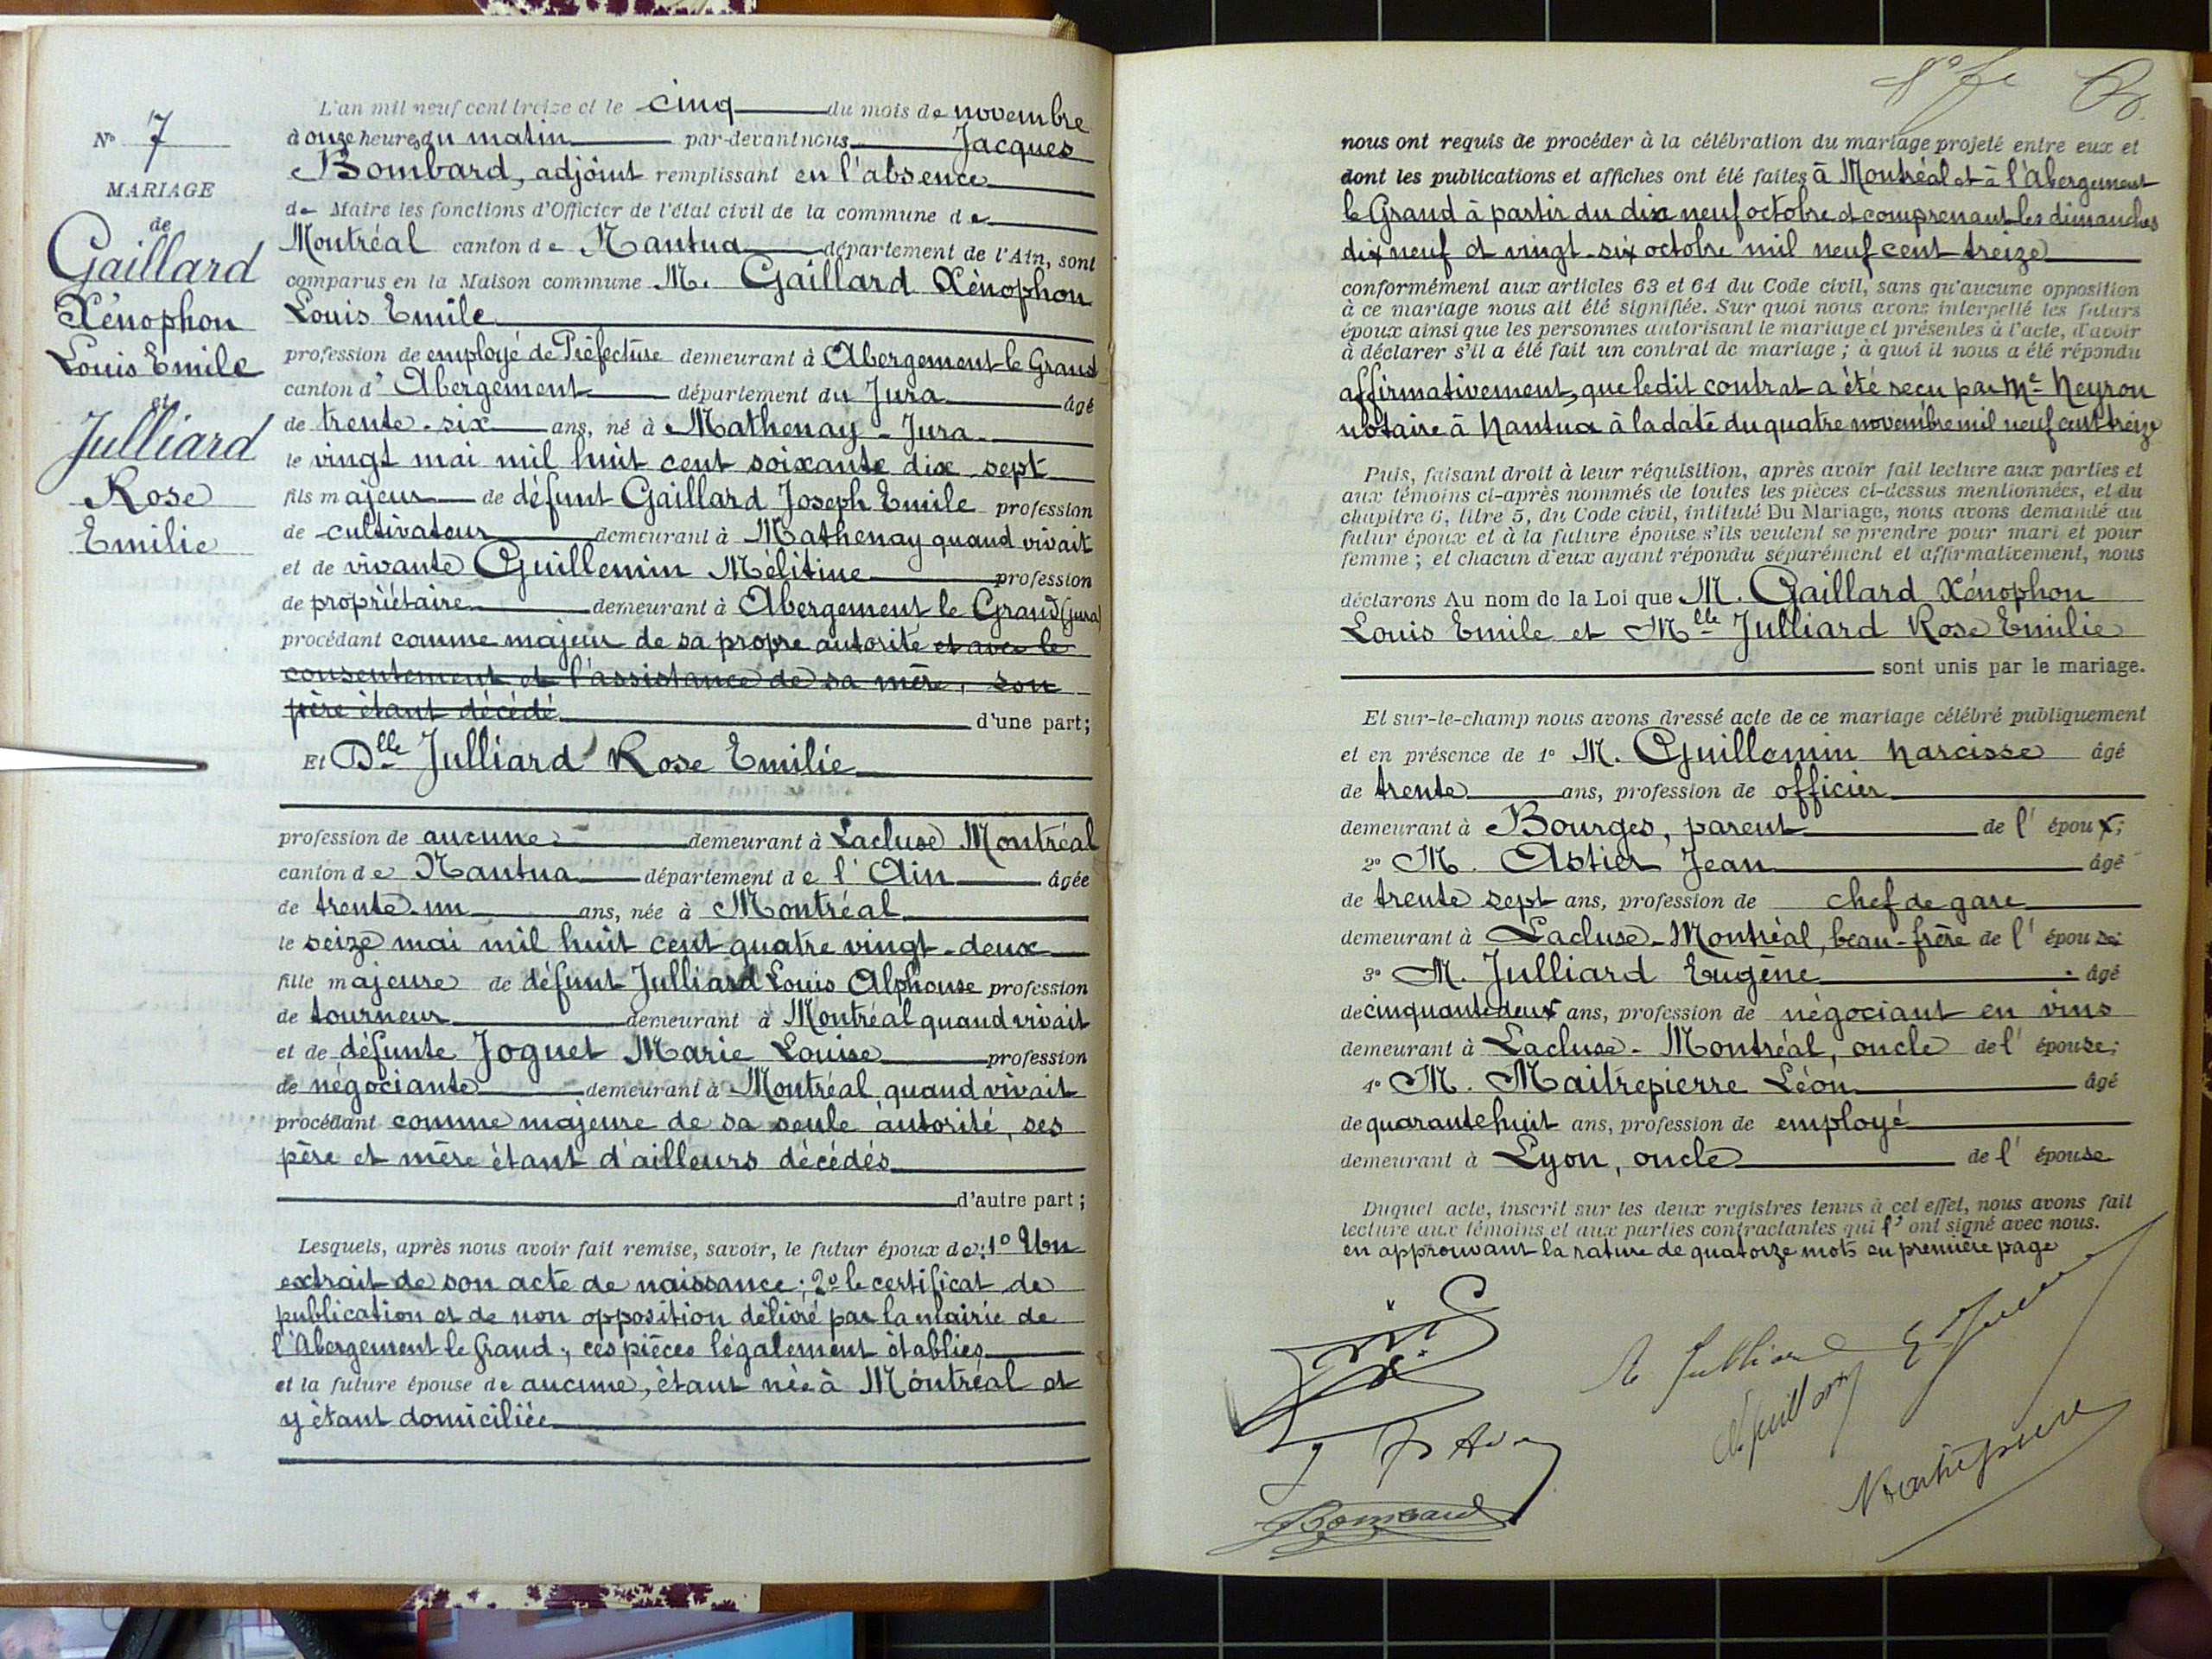 N° 7
MARIAGE
de
Gaillard
Xénophon
Louis Emile
et
Julliard
Rose
Emilie
L'an mil neuf cent treize et le cinq du mois de novembre
à onze heures du matin par-devant nous Jacques
Bombard, adjoint remplissant en l'absence
de Maire les fonctions d'Officier de l'état civil de la commune de
Montréal canton de Nantua département de l'Ain, sont
comparus en la Maison commune M. Gaillard Xènophon
Louis Emile
profession de employé de Préfecture demeurant à Abergement-le Grand
canton d' Abergement département du Jura âgé
de trente-six ans, né à Mathenay - Jura
le vingt mai mil huit cent soixante dix sept
fils majeur de défunt Gaillard Joseph Emile profession
de cultivateur demeurant à Mathenay quand vivait
et de vivante Guillemin Mélitine profession
de propriétaire demeurant à Abergement le Grand (Jura)
procédant comme majeur de sa propre autorité et avec le
consentement et l'assistance de sa mère, son
père étant décédé d'une part;
Et Dlle Julliard Rose Emilie
profession de aucune demeurant à Lacluse Montréal
canton de Nantua département de l'Ain âgée
de trente-un ans, née à Montréal
le seize mai mil huit cent quatre vingt-deux
fille majeure de défunt Julliard Louis Alphonse profession
de tourneur demeurant à Montréal quand vivait
et de défunte Joguet Marie Louise profession
de négociante demeurant à Montréal quand vivait
procédant comme majeure de sa seule autorité, ses
père et mère étant d'ailleurs décédés
d'autre part;
Lesquels, après nous avoir fait remise, savoir, le futur époux de: 1° Un
extrait de son acte de naissance; 2° le certificat de
publication et de non opposition délivré par la mairie de
l'Abergement le Grand; ces pièces légalement établies
et la future épouse de aucune, étant née à Montréal et
y étant domiciliée
nous ont requis de procéder à la célébration du mariage projeté entre eux et
dont les publications et affiches ont été faites à Montréal et à l'Abergement
le Grand à partir du dix neuf octobre et comprenant les dimanches
dix neuf et vingt-six octobre mil neuf cent treize
conformément aux articles 63 et 64 du Code civil, sans qu'aucune opposition
à ce mariage nous ait été signifiée. Sur quoi nous avons interpellé les futurs
époux ainsi que les personnes autorisant le mariage et présentes à l'acte, d'avoir
à déclarer s'il a été fait un contrat de mariage; à quoi il nous a été répondu
affirmativement, que ledit contrat a été reçu par Me Neyron
notaire à Nantua à la date du quatre novembre mil neuf cent treize
Puis, faisant droit à leur réquisition, après avoir fait lecture aux parties et
aux témoins ci-après nommés de toutes les pièces ci-dessus mentionnées, et du
chapitre 6, titre 5, du Code civil, intitulé Du Mariage, nous avons demandé au
futur époux et à la future épouse s'ils veulent se prendre pour mari et pour
femme; et chacun d'eux ayant répondu séparément et affirmativement, nous
déclarons Au nom de la Loi que M. Gaillard Xénophon
Louis Emile et Mlle Julliard Rose Emilie
sont unis par le mariage.
Et sur-le-champ nous avons dressé acte de ce mariage célébré publiquement
et en présence de 1° M. Guillemin Narcisse âgé
de trente ans, profession de officier
demeurant à Bourges, parent de l'époux;
2° M. Astier Jean âgé
de trente sept ans, profession de chef de gare
demeurant à Lacluse-Montréal, beau-frère de l'épouse;
3° M. Julliard Eugène âgé
de cinquante deux ans, profession de négociant en vins
demeurant à Lacluse-Montréal, oncle de l'épouse;
4° M. Maitrepierre Léon âgé
de quarante huit ans, profession de employé
demeurant à Lyon, oncle de l'épouse
Duquel acte, inscrit sur les deux registres tenus à cet effet, nous avons fait
lecture aux témoins et aux parties contractantes qui l'ont signé avec nous.
en approuvant la rature de quatorze mots en première page
R Julliard
Maitrepierre
Bombard